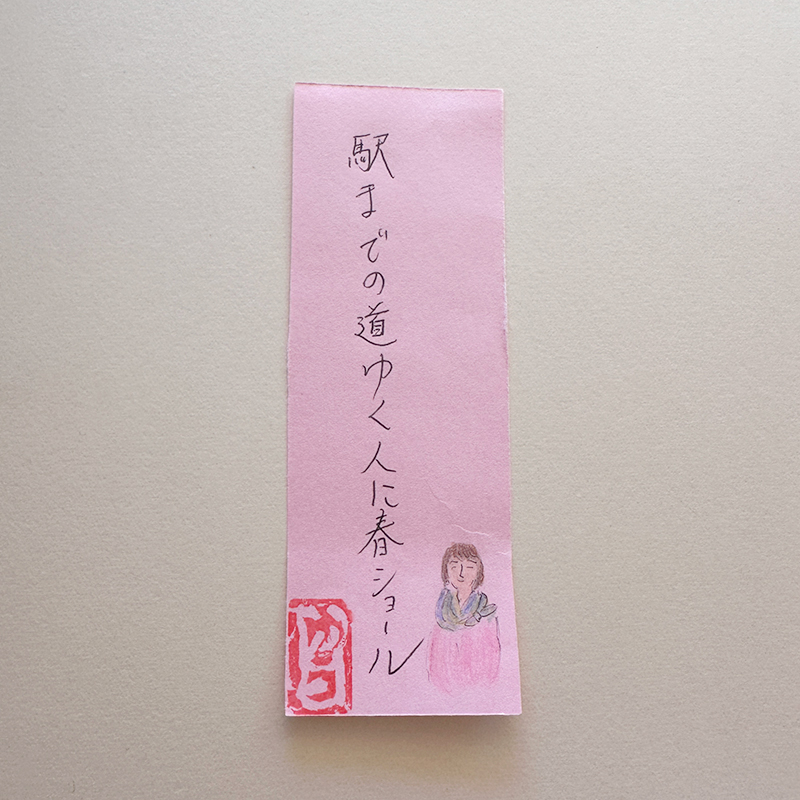 駅までの道ゆく人に春ショール